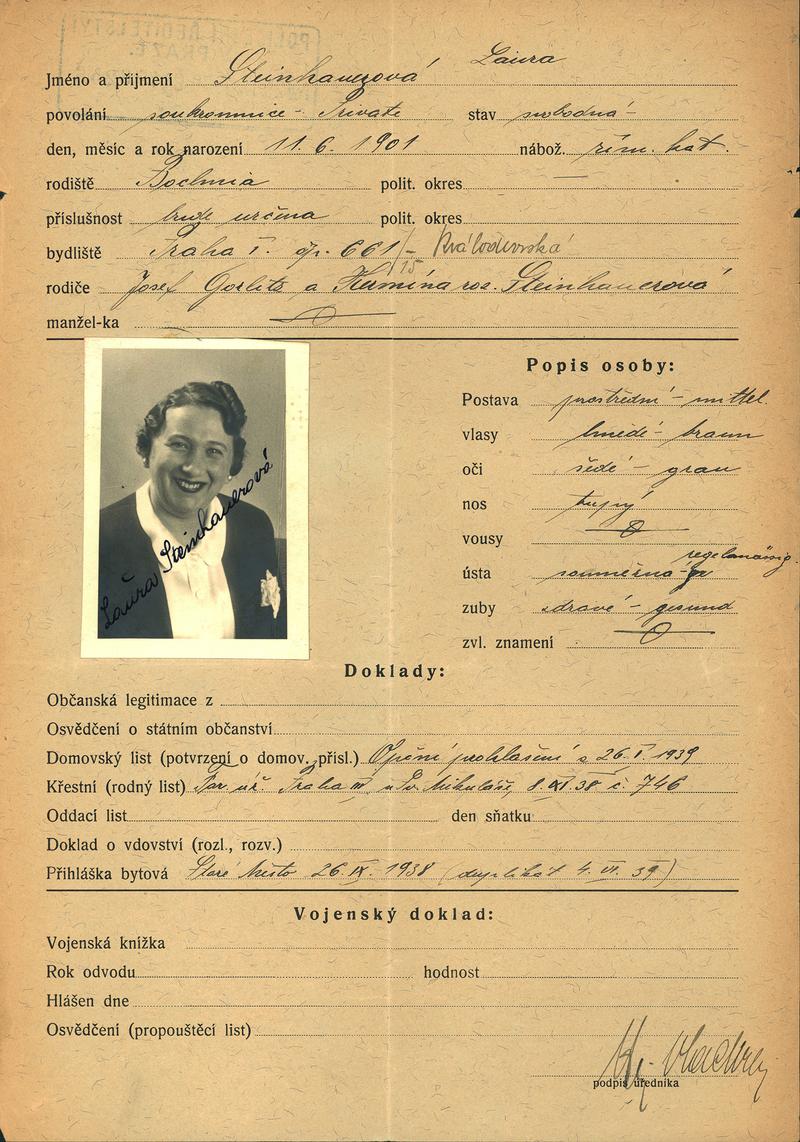 POLI ŘEDITELSTVÍ
PRAZE.
Jméno a přijmení Steinhauerová Laura
povolání soukromnice - Private stav svobodná -
den, měsíc a rok narození 11. 6. 1901 nábož. řím. kat.
rodiště Bochnia polit. okres —
příslušnost bude určena polit. okres
bydliště Praha I. čp. 661/15 - Královdvorská
rodiče Josef Gorlitz a Hermína roz. Steinhauerová
manžel-ka
Laura Steinhauerová
Popis osoby:
Postava prostřední - mittel.
vlasy hnědé - braun
oči šedé - grau
nos tupý
vousy
ústa souměrná - regelmässig.
zuby zdravé - gesund
zvl. znamení
Doklady:
Občanská legitimace z
Osvědčení o státním občanství
Domovský list (potvrzení o domov. přísl.) prohlášení z 26. I. 1939
Křestní (rodný list) Far. úř. Praha III, u Sv. Mikuláše, 8. XI. 38 č. 746
Oddací list den sňatku
Doklad o vdovství (rozl., rozv.)
Přihláška bytová Staré Město 26. IX. 1938 (duplikát 4. VI. 39)
Vojenský doklad:
Vojenská knížka
Rok odvodu hodnost
Hlášen dne
Osvědčení (propouštěcí list)
podpis úředníka